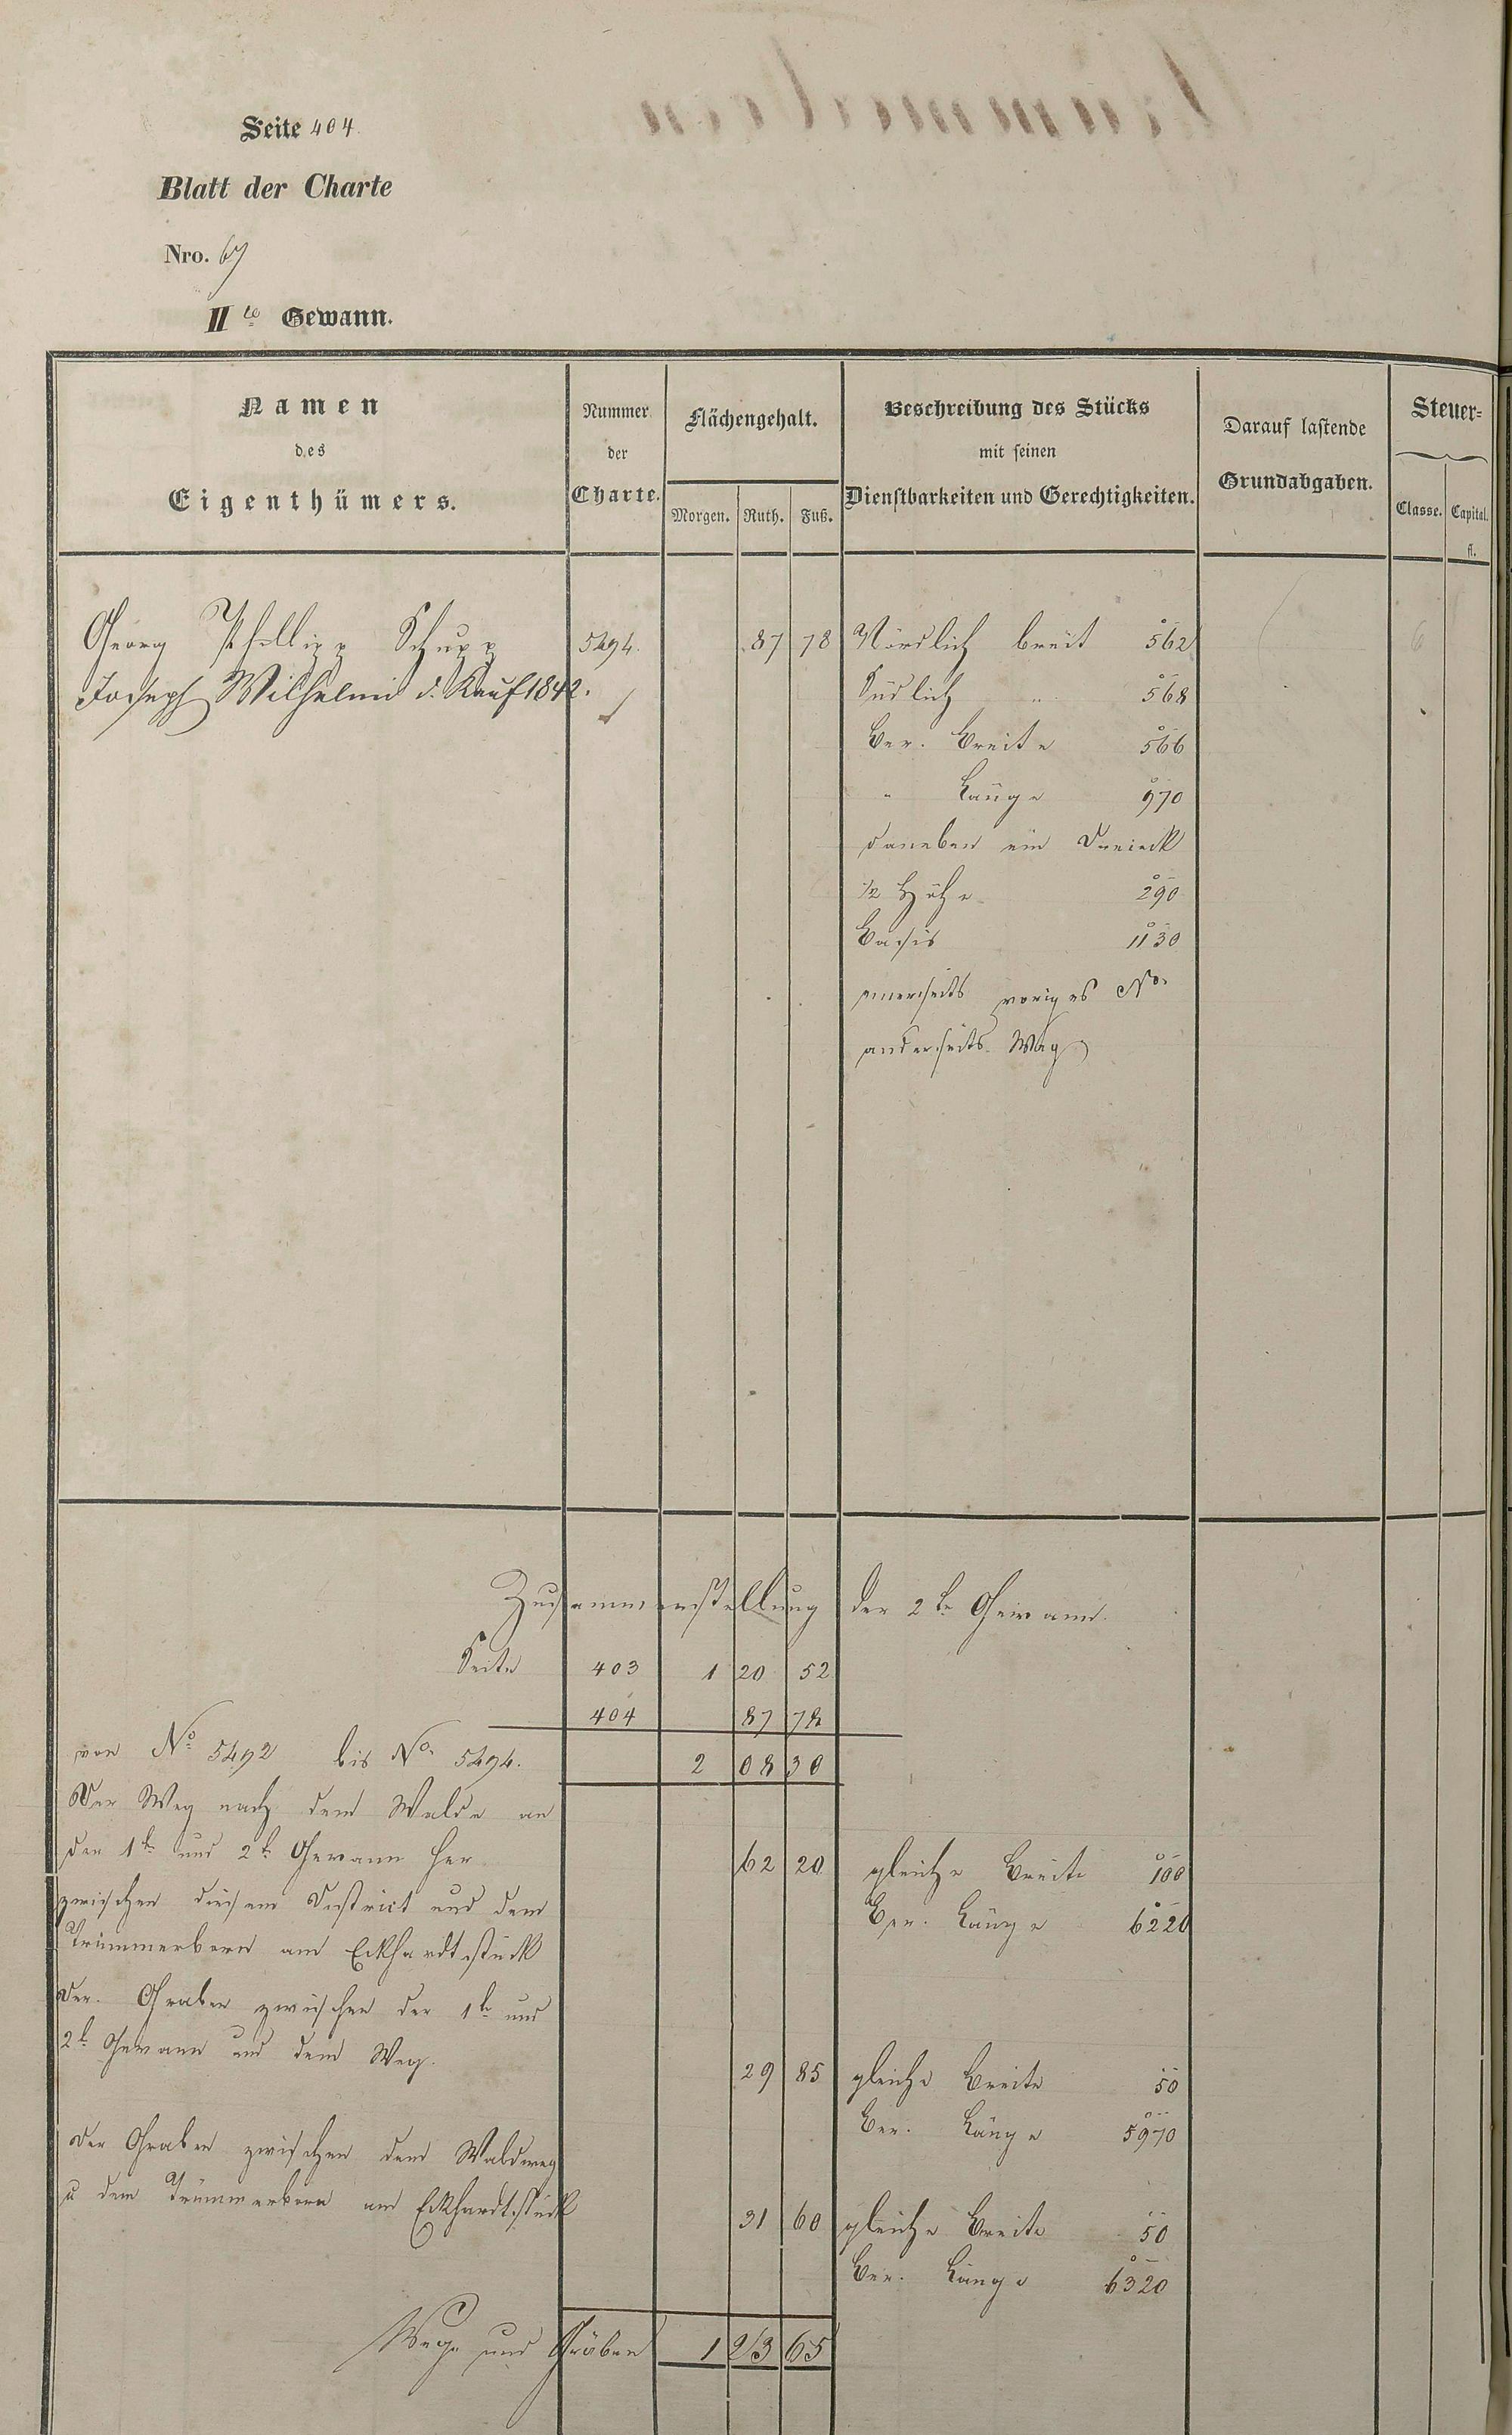 Seite 404.
Blatt der Charte
Nro. 67
II te Gewann.
Namen des Eigenthümers.
Nummer der Charte.
Flächengehalt.
Morgen. Ruth. Fuß.
Beschreibung des Stücks mit seinen Dienstbarkeiten und Gerechtigkeiten.
Darauf lastende Grundabgaben.
Steuer-
Classe. Capital. fl.
Georg Phillipp Schupp 5494. 87 78 Nördlich breit 562
Joseph Wilhelmi d. Kauf 1842. Südlich " 568
Ber. Breite 566
" Länge 970
daneben ein Dreieck
1/2 Höhe 290
Basis 1130
einerseits voriges No.
anderseits Weg
Zusammenstellung der 2te Gewann.
Seite 403 1 20 52
404 87 78
von No 5492 bis No. 5494. 2 08 30
Der Weg nach dem Walde an
der 1te und 2te Gewann her
zwischen diesem District und dem
Trümmerborn am Eckhardtstück
62 20 gleiche Breite 100
Ber. Länge 6220
Der Graben zwischen der 1te und
2te Gewann und dem Weg.
29 85 gleiche Breite 50
Ber. Länge 5970
Der Graben zwischen dem Waldweg
u dem Trümmerborn am Eckhardtstück
31 60 gleiche Breite 50
Ber. Länge 6320
Wege und Gräben 1 23 65